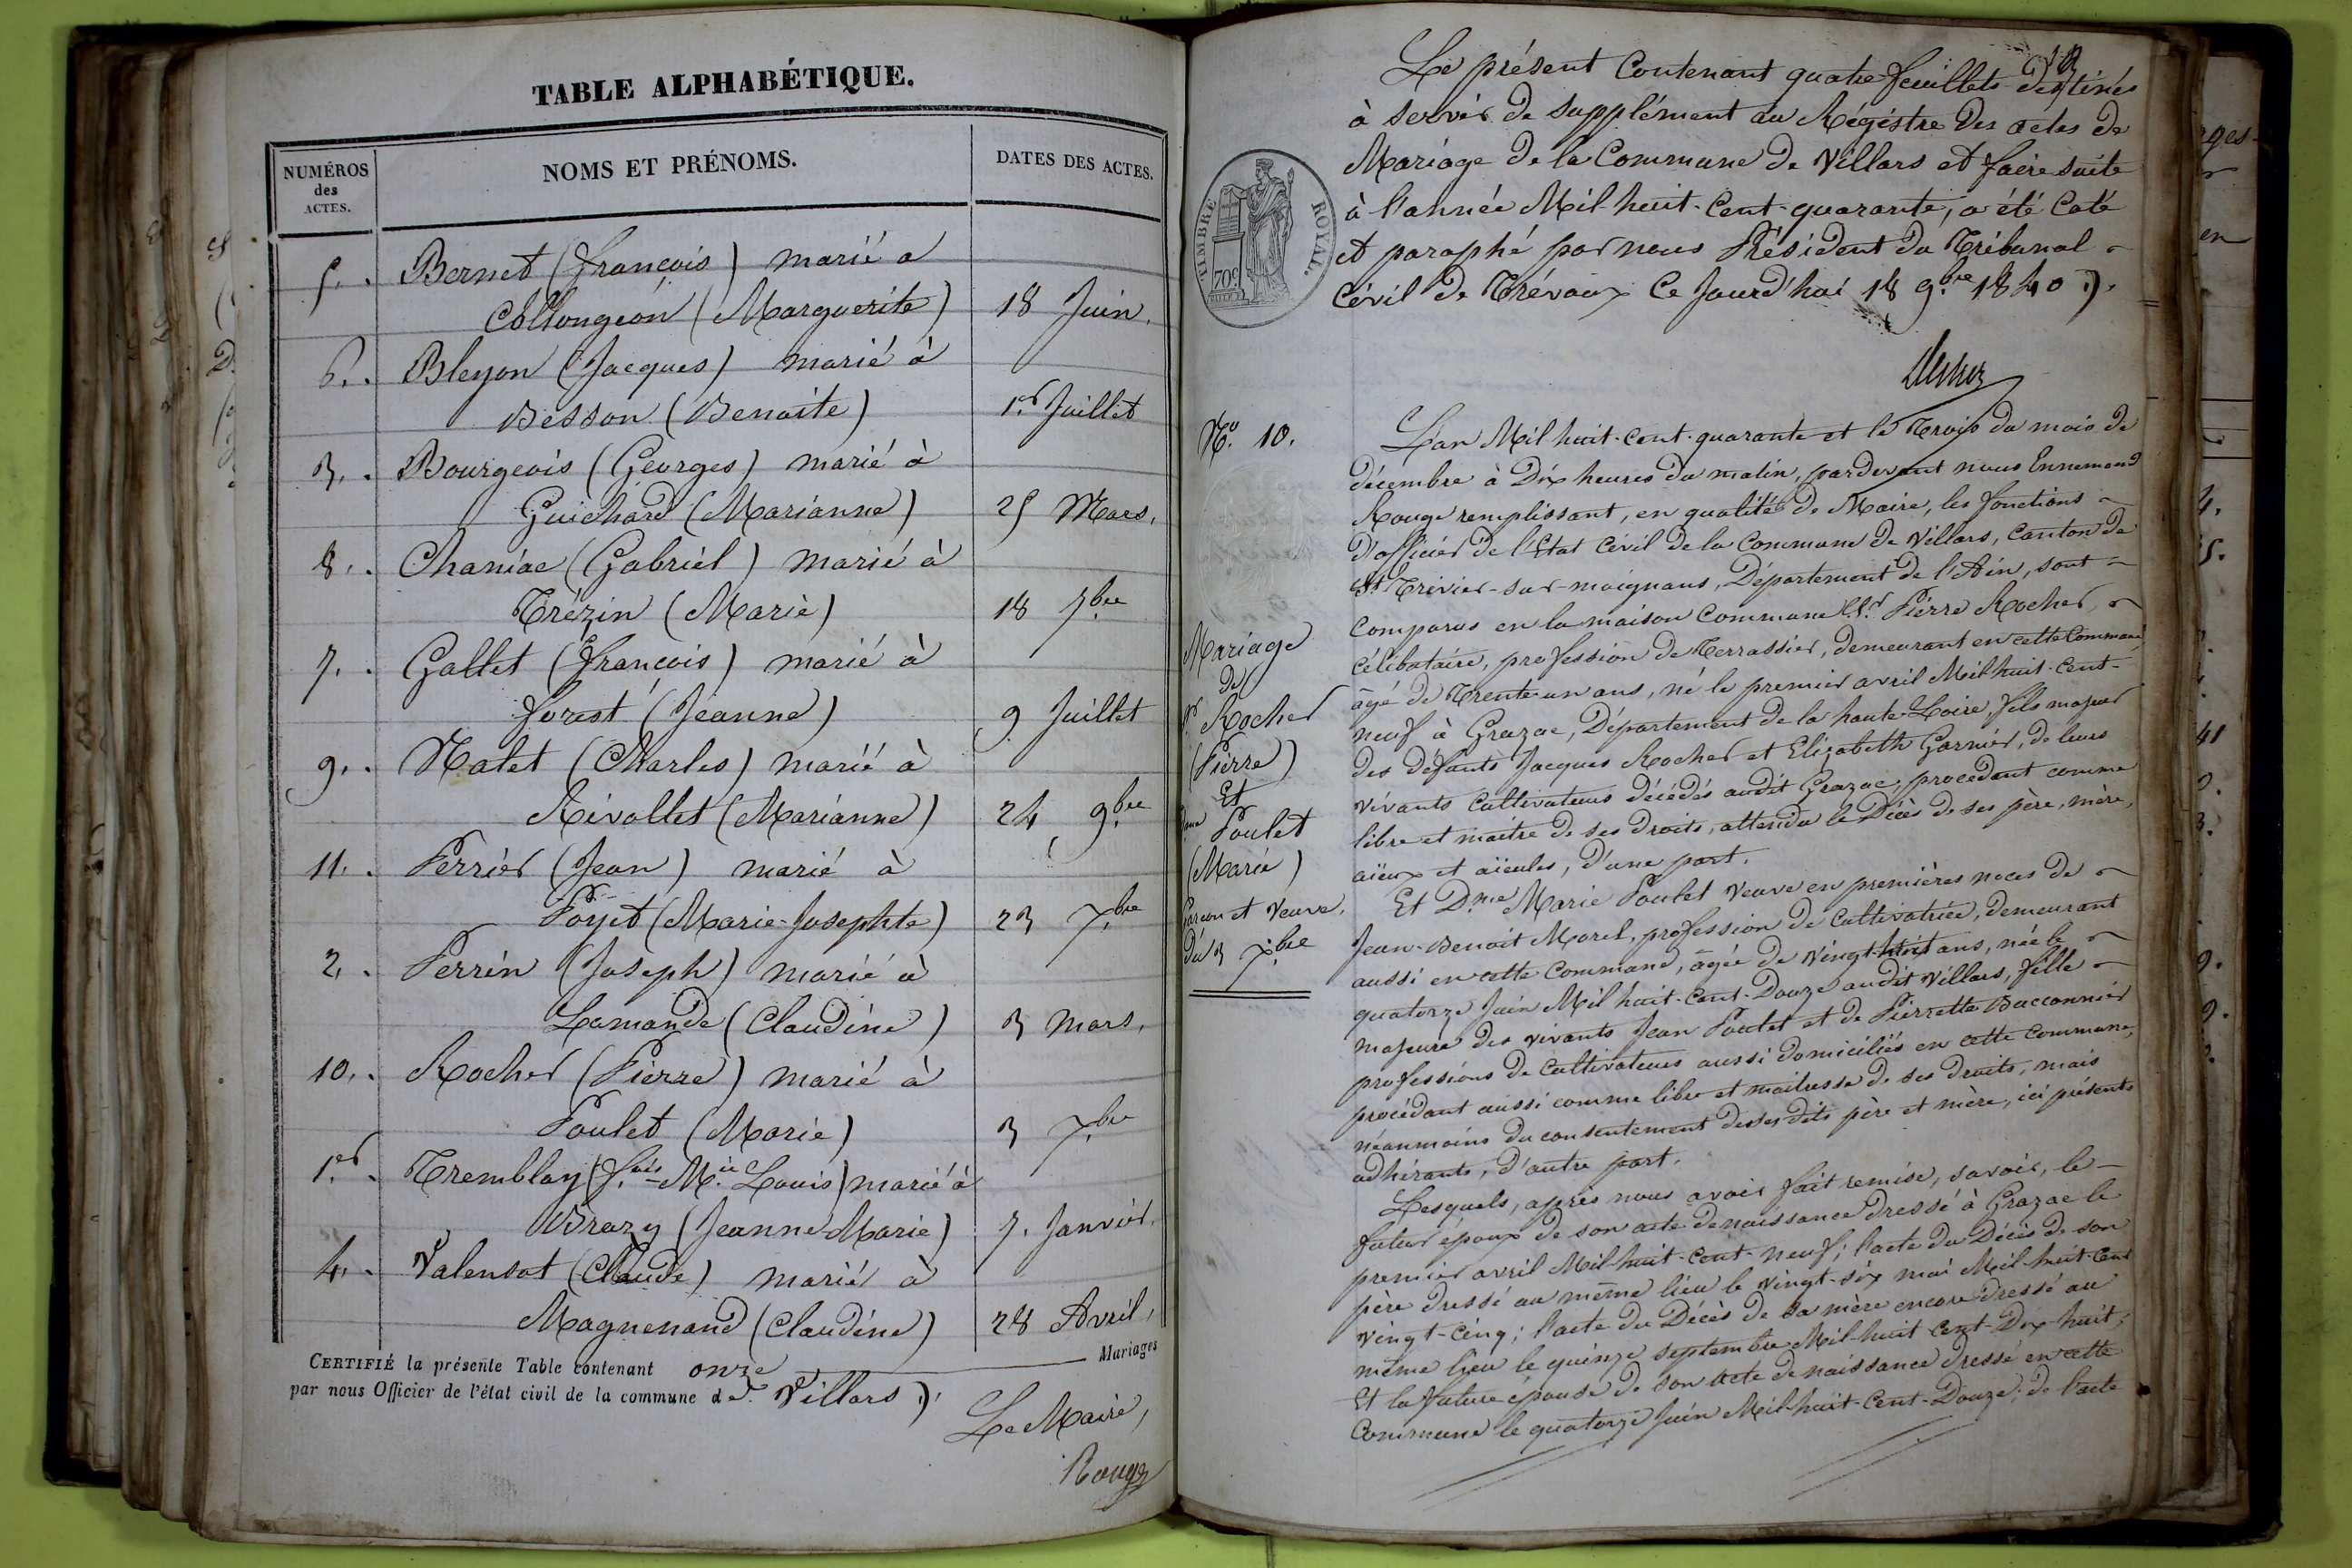 TABLE ALPHABÉTIQUE.
NUMÉROS des ACTES.
NOMS ET PRÉNOMS.
DATES DES ACTES.
5. Bernet (françois) marié a
Collongeon (Marguerite) 18 Juin.
6. Bleyon (Jacques) marié à
Besson (Benoite) 1er Juillet
3. Bourgeois (Georges) marié à
Guichard (Marianne) 25 Mars.
8. Chaniac (Gabriel) marié à
Trézin (Marie) 18 7bre
7. Gallet (françois) marié à
forest (Jeanne) 9 Juillet
9. Nalet (Charles) marié à
Rivollet (Marianne) 24 9bre
11. Perrier (Jean) marié à
Poyet (Marie-Josephte) 23 Xbre
2. Perrin (Joseph) marié à
Lamande (Claudine) 3 mars.
10. Rocher (Pierre) marié à
Poulet (Marie) 3 Xbre
1er. Tremblay (f.ois-M.ie Louis) marié à
Brazy (Jeanne Marie) 7. Janvier.
4. Valensot (Claude) marié à
Magnenand (Claudine) 28 Avril,
CERTIFIÉ la présente Table contenant onze Mariages
par nous Officier de l'état civil de la commune de Villars).
Le Maire,
Rouge
Le présent Contenant quatre feuillets destinés
à servir de supplément au Régistre des actes de
Mariage de la Commune de Villars et faire suite
à l'année Mil-huit-Cent-quarante, a été Coté
et paraphé par nous Président du Tribunal
Civil de Trévoux Ce Jourd'hui 18 9bre 1840).
TIMBRE ROYAL.
70c
N.o 10.
Mariage
de
Sr. Rocher
(Pierre)
Et
Dame Poulet
(Marie)
Garcon et Veuve.
Du 3 Xbre
L'an Mil huit-cent-quarante et le Trois du mois de
décembre à Dix heures du matin, pardevant nous Ennemond
Rouge remplissant, en qualité de Maire, les fonctions
d'officier de l'Etat Civil de la Commune de Villars, Canton de
St Trivier-sur-moignans, Département de l'Ain, sont
comparus en la maison Commune le Sr. Pierre Rocher,
célibataire, profession de Terrassier, demeurant en cette Commune
âgé de Trente-un ans, né le premier avril Mil huit-Cent-
neuf à Grazac, Département de la haute-Loire, fils majeur
des défunts Jacques Rocher et Elizabeth Garnier, de leurs
vivants Cultivateurs décédés audit Grazac, procédant comme
libre et maitre de ses droits, attendu le Décès de ses père, mère,
aïeux et aïeules, d'une part.
Et D.me Marie Poulet Veuve en premières noces de
Jean-Benoit Morel, profession de Cultivatrice, demeurant
aussi en cette Commune, âgée de Vingt-huit ans, née le
quatorze Juin Mil huit-Cent-Douze audit Villars, fille
majeure des vivants Jean Poulet et de Pierrette Bacconnier
professions de Cultivateurs aussi domiciliés en cette Commune,
procédant aussi comme libre et maitresse de ses droits, mais
néanmoins du consentement de ses dits père et mère, ici présents
adhérants, d'autre part.
Lesquels, après nous avoir fait remise, savoir, le
futur époux de son acte de naissance dressé à Grazac le
premier avril Mil-huit-cent-neuf; l'acte du Décès de son
père dressé au même lieu le vingt-six mai Mil-huit-Cent
vingt-Cinq; l'acte du Décès de sa mère encore dressé au
même lieu le quinze septembre Mil-huit-Cent-Dix-huit;
Et la future épouse de son acte de naissance dressé en cette
Commune le quatorze Juin Mil-huit-Cent-Douze; de l'acte